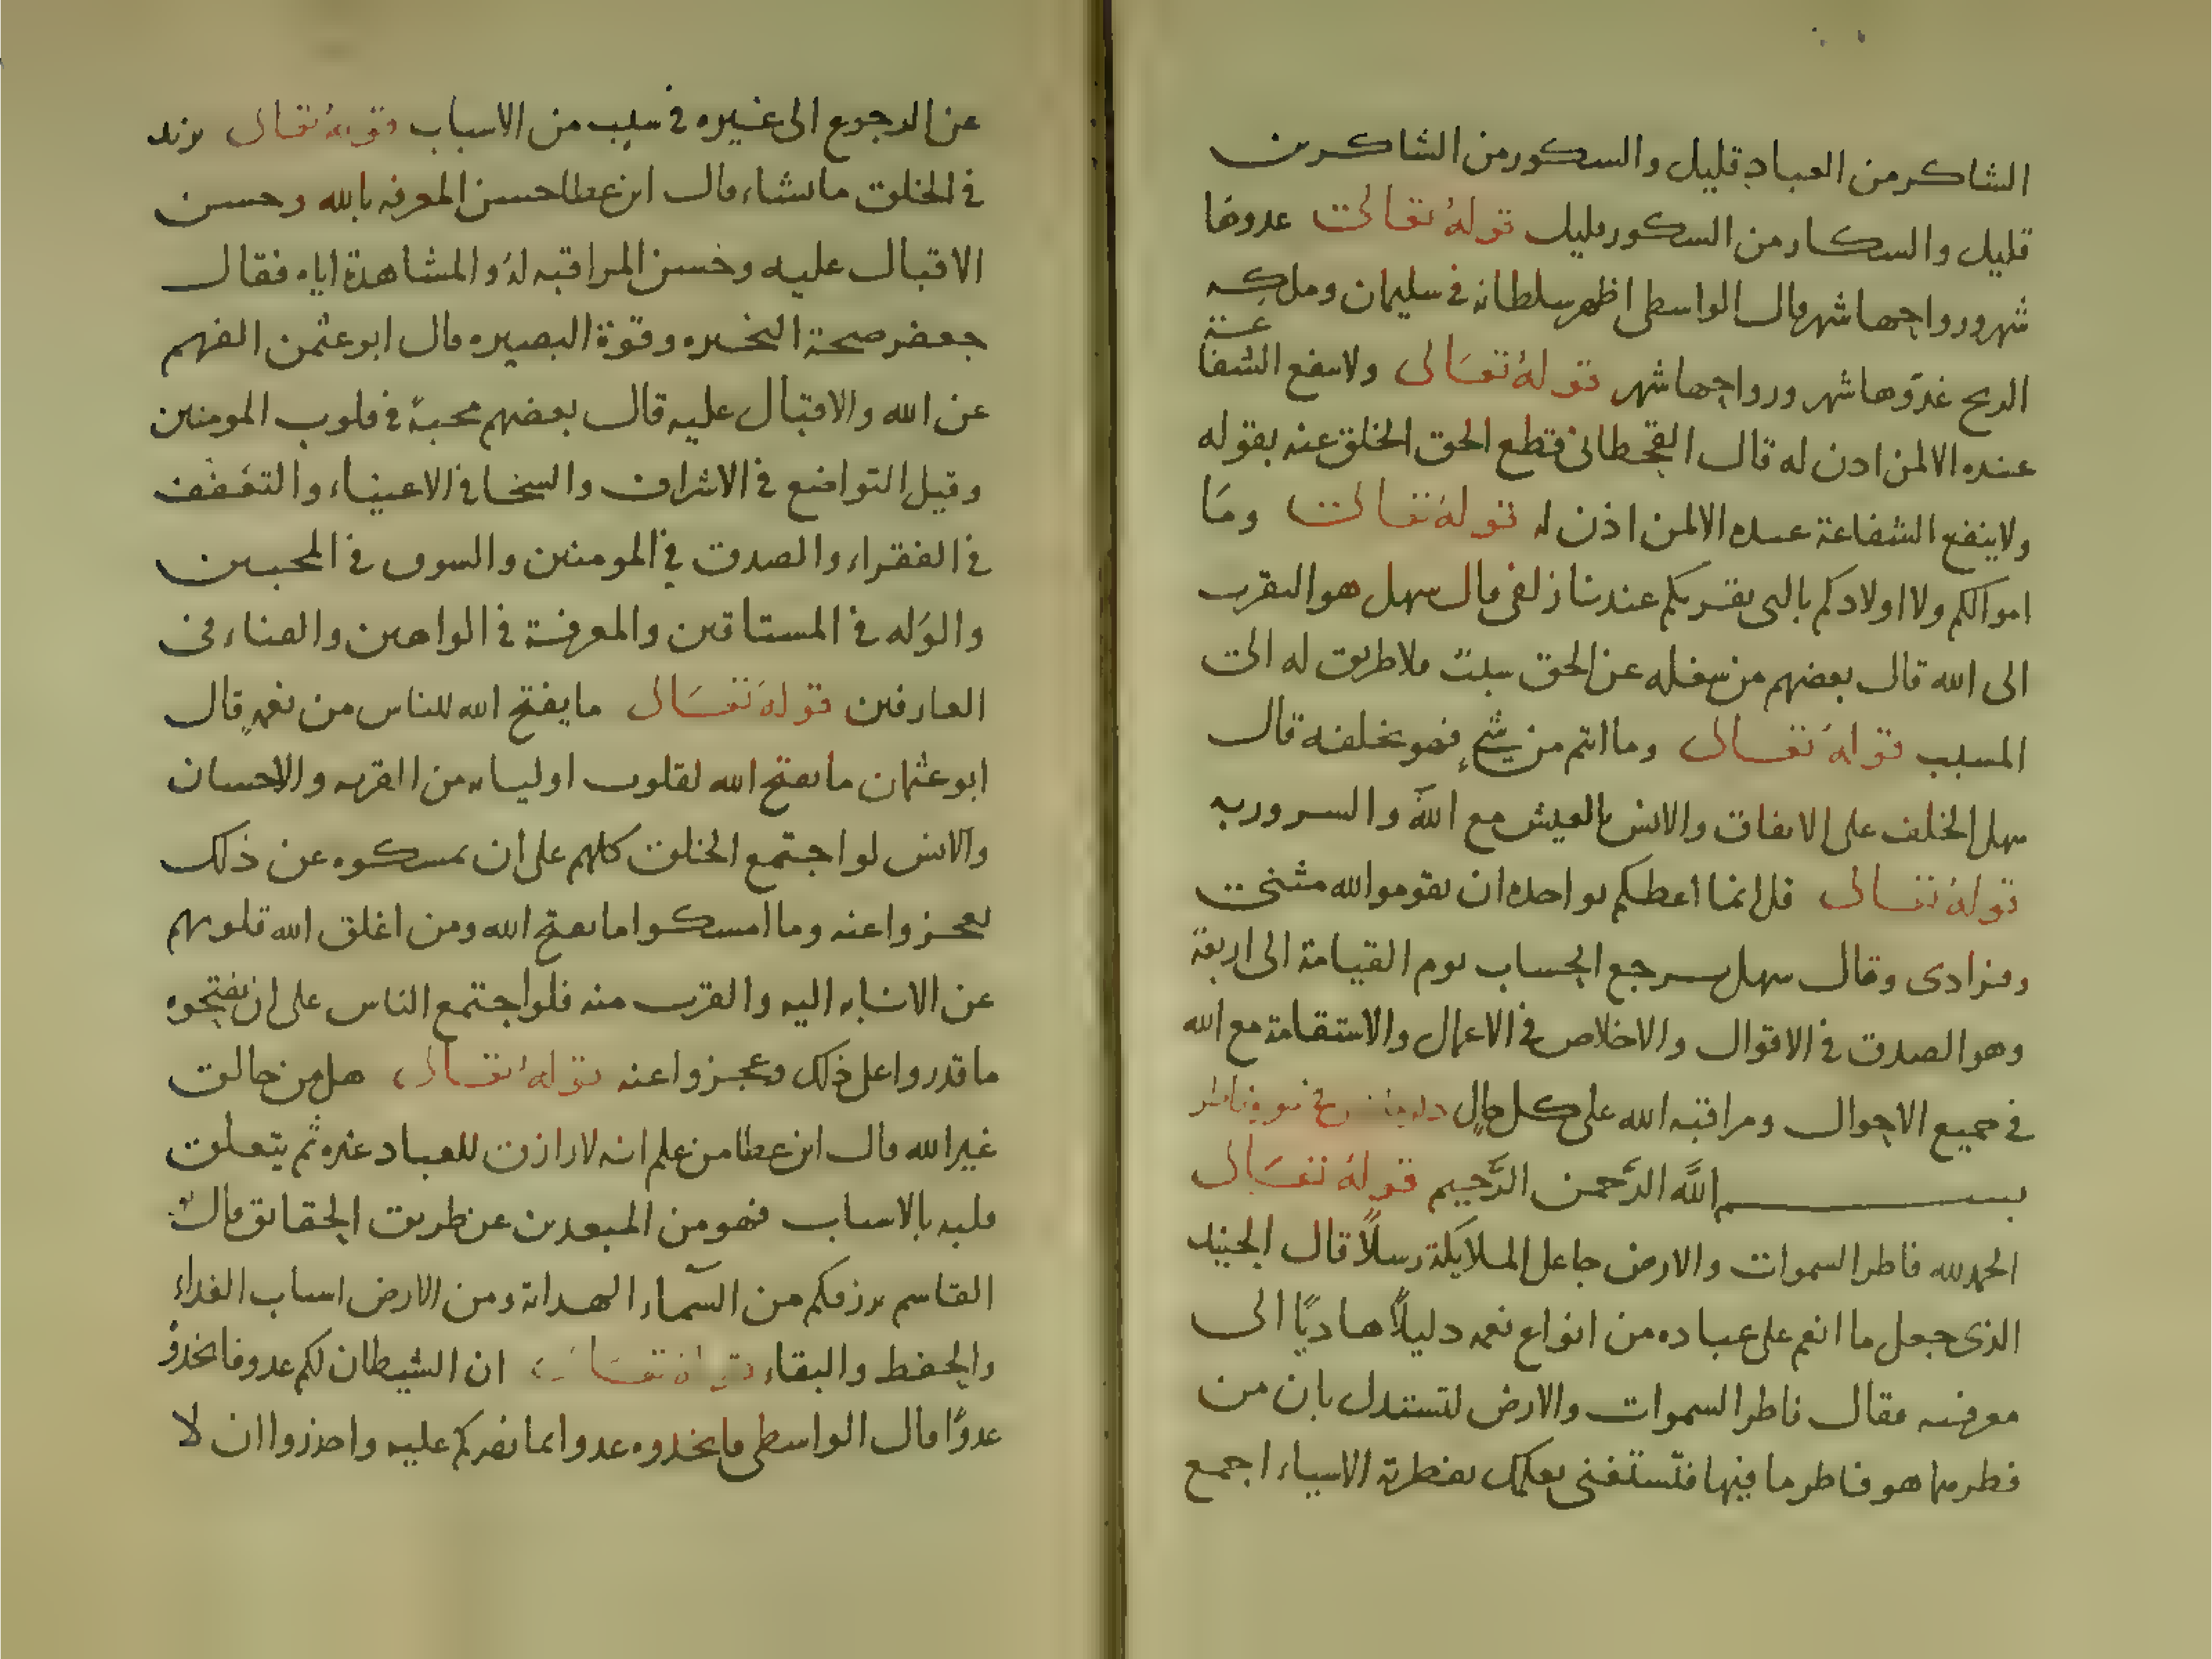 الشاكر من العباد قليل والسكور من الشاكرين
قليل والسكار من السكور قليل قوله تعالى غدوها
شهر ورواحها شهر قال الواسطى اظهر سلطانه في سليمان وملكه
الريح غدوها شهر ورواحها شهر قوله تعالى ولا تنفع الشفاعة
عنده الا لمن اذن له قال القحطانى قطع الحق الخلق عنه بقوله
ولا ينفع الشفاعة عنده الا لمن اذن له قوله تعالى وما
اموالكم ولا اولادكم بالتى تقربكم عندنا زلفى قال سهل هو التقرب
الى الله قال بعضهم من شغله عن الحق سبب فلا طريق له الى
المسبب قوله تعالى وما انتم من شيء فهو يخلفه قال
سهل الخلف على الانفاق والانس بالعيش مع الله والسرور به
قوله تعالى قل انما اعظكم بواحده ان تقوموا لله مثنى
وفرادى وقال سهل يرجع الحساب يوم القيامة الى اربعة
وهو الصدق في الاقوال والاخلاص في الاعمال والاستقامة مع الله
في جميع الاحوال ومراقبه الله على كل حال
بسم الله الرحمن الرحيم قوله تعالى
الحمد لله فاطر السموات والارض جاعل الملايكة رسلا قال الجنيد
الذى جعل ما انعم على عباده من انواع نعمه دليلا هاديا الى
معرفته فقال فاطر السموات والارض لتستدل بان من
فطرهما هو فاطر ما فيها فتستغنى بعلمك بفطرته الاشياء اجمع
عن الرجوع الى غيره في سبب من الاسباب قوله تعالى يزيد
في الخلق ما يشاء قال ابن عطا حسن المعرفه بالله وحسن
الاقبال عليه وحسن المراقبه له والمشاهدة اياه فقال
جعفر صحة النحيزه وقوة البصيره قال ابو عثمن الفهم
عن الله والاقبال عليه قال بعضهم محبة في قلوب المومنين
وقيل التواضع في الاشراف والسخا في الاغنياء والتعفف
في الفقراء والصدق في المومنين والشوق في المحبين
والوله في المستاقين والمعرفة في الواهين والفناء في
العارفين قوله تعالى ما يفتح الله للناس من نعمه قال
ابو عثمان ما يفتح الله لقلوب اوليايه من القربه والاحسان
والانس لو اجتمع الخلق كلهم على ان يمسكوه عن ذلك
لعجزوا عنه وما امسكوا ما يفتح الله ومن اغلق الله قلوبهم
عن الانابه اليه والقرب منه فلو اجتمع الناس على ان يفتحوه
ما قدروا على ذلك وعجزوا عنه قوله تعالى هل من خالق
غير الله قال ابن عطا من علم انه لا رازق للعباد غيره ثم يتعلق
قلبه بالاسباب فهو من المبعدين عن طريق الحقائق قال
القاسم يرزقكم من السماء الهداية ومن الارض اسباب الغداء
والحفظ والبقاء قوله تعالى ان الشيطان لكم عدو فاتخذوه
عدوا قال الواسطى فاتخذوه عدوا بما نصركم عليه واحذروا ان لا